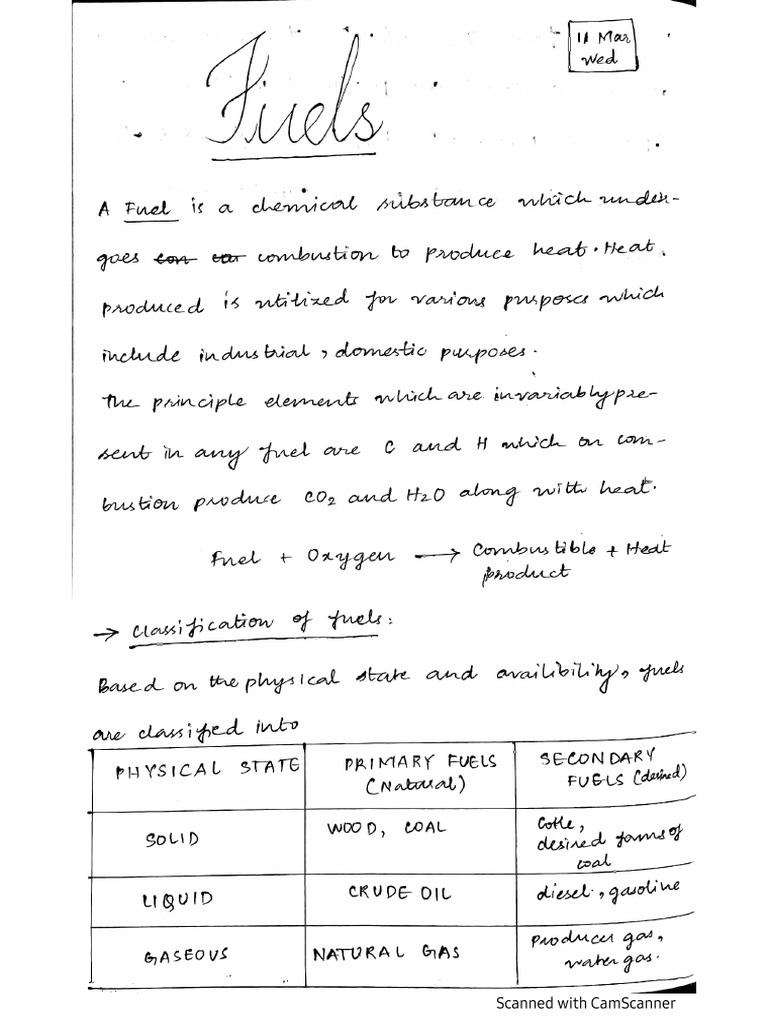 11 Mar
Wed
Fuels
A Fuel is a chemical substance which under-
goes con car combustion to produce heat. Heat
produced is utilized for various purposes which
include industrial, domestic purposes.
The principle elements which are invariably pre-
sent in any fuel are C and H which on com-
bustion produce CO2 and H2O along with heat.
Fuel + Oxygen → Combustible + Heat
product
→ Classification of fuels:
Based on the physical state and availibility, fuels
are classified into
PHYSICAL STATE PRIMARY FUELS (Natural) SECONDARY FUELS (desired)
SOLID WOOD, COAL Coke, desired forms of coal
LIQUID CRUDE OIL diesel, gasoline
GASEOUS NATURAL GAS Producer gas, water gas.
Scanned with CamScanner